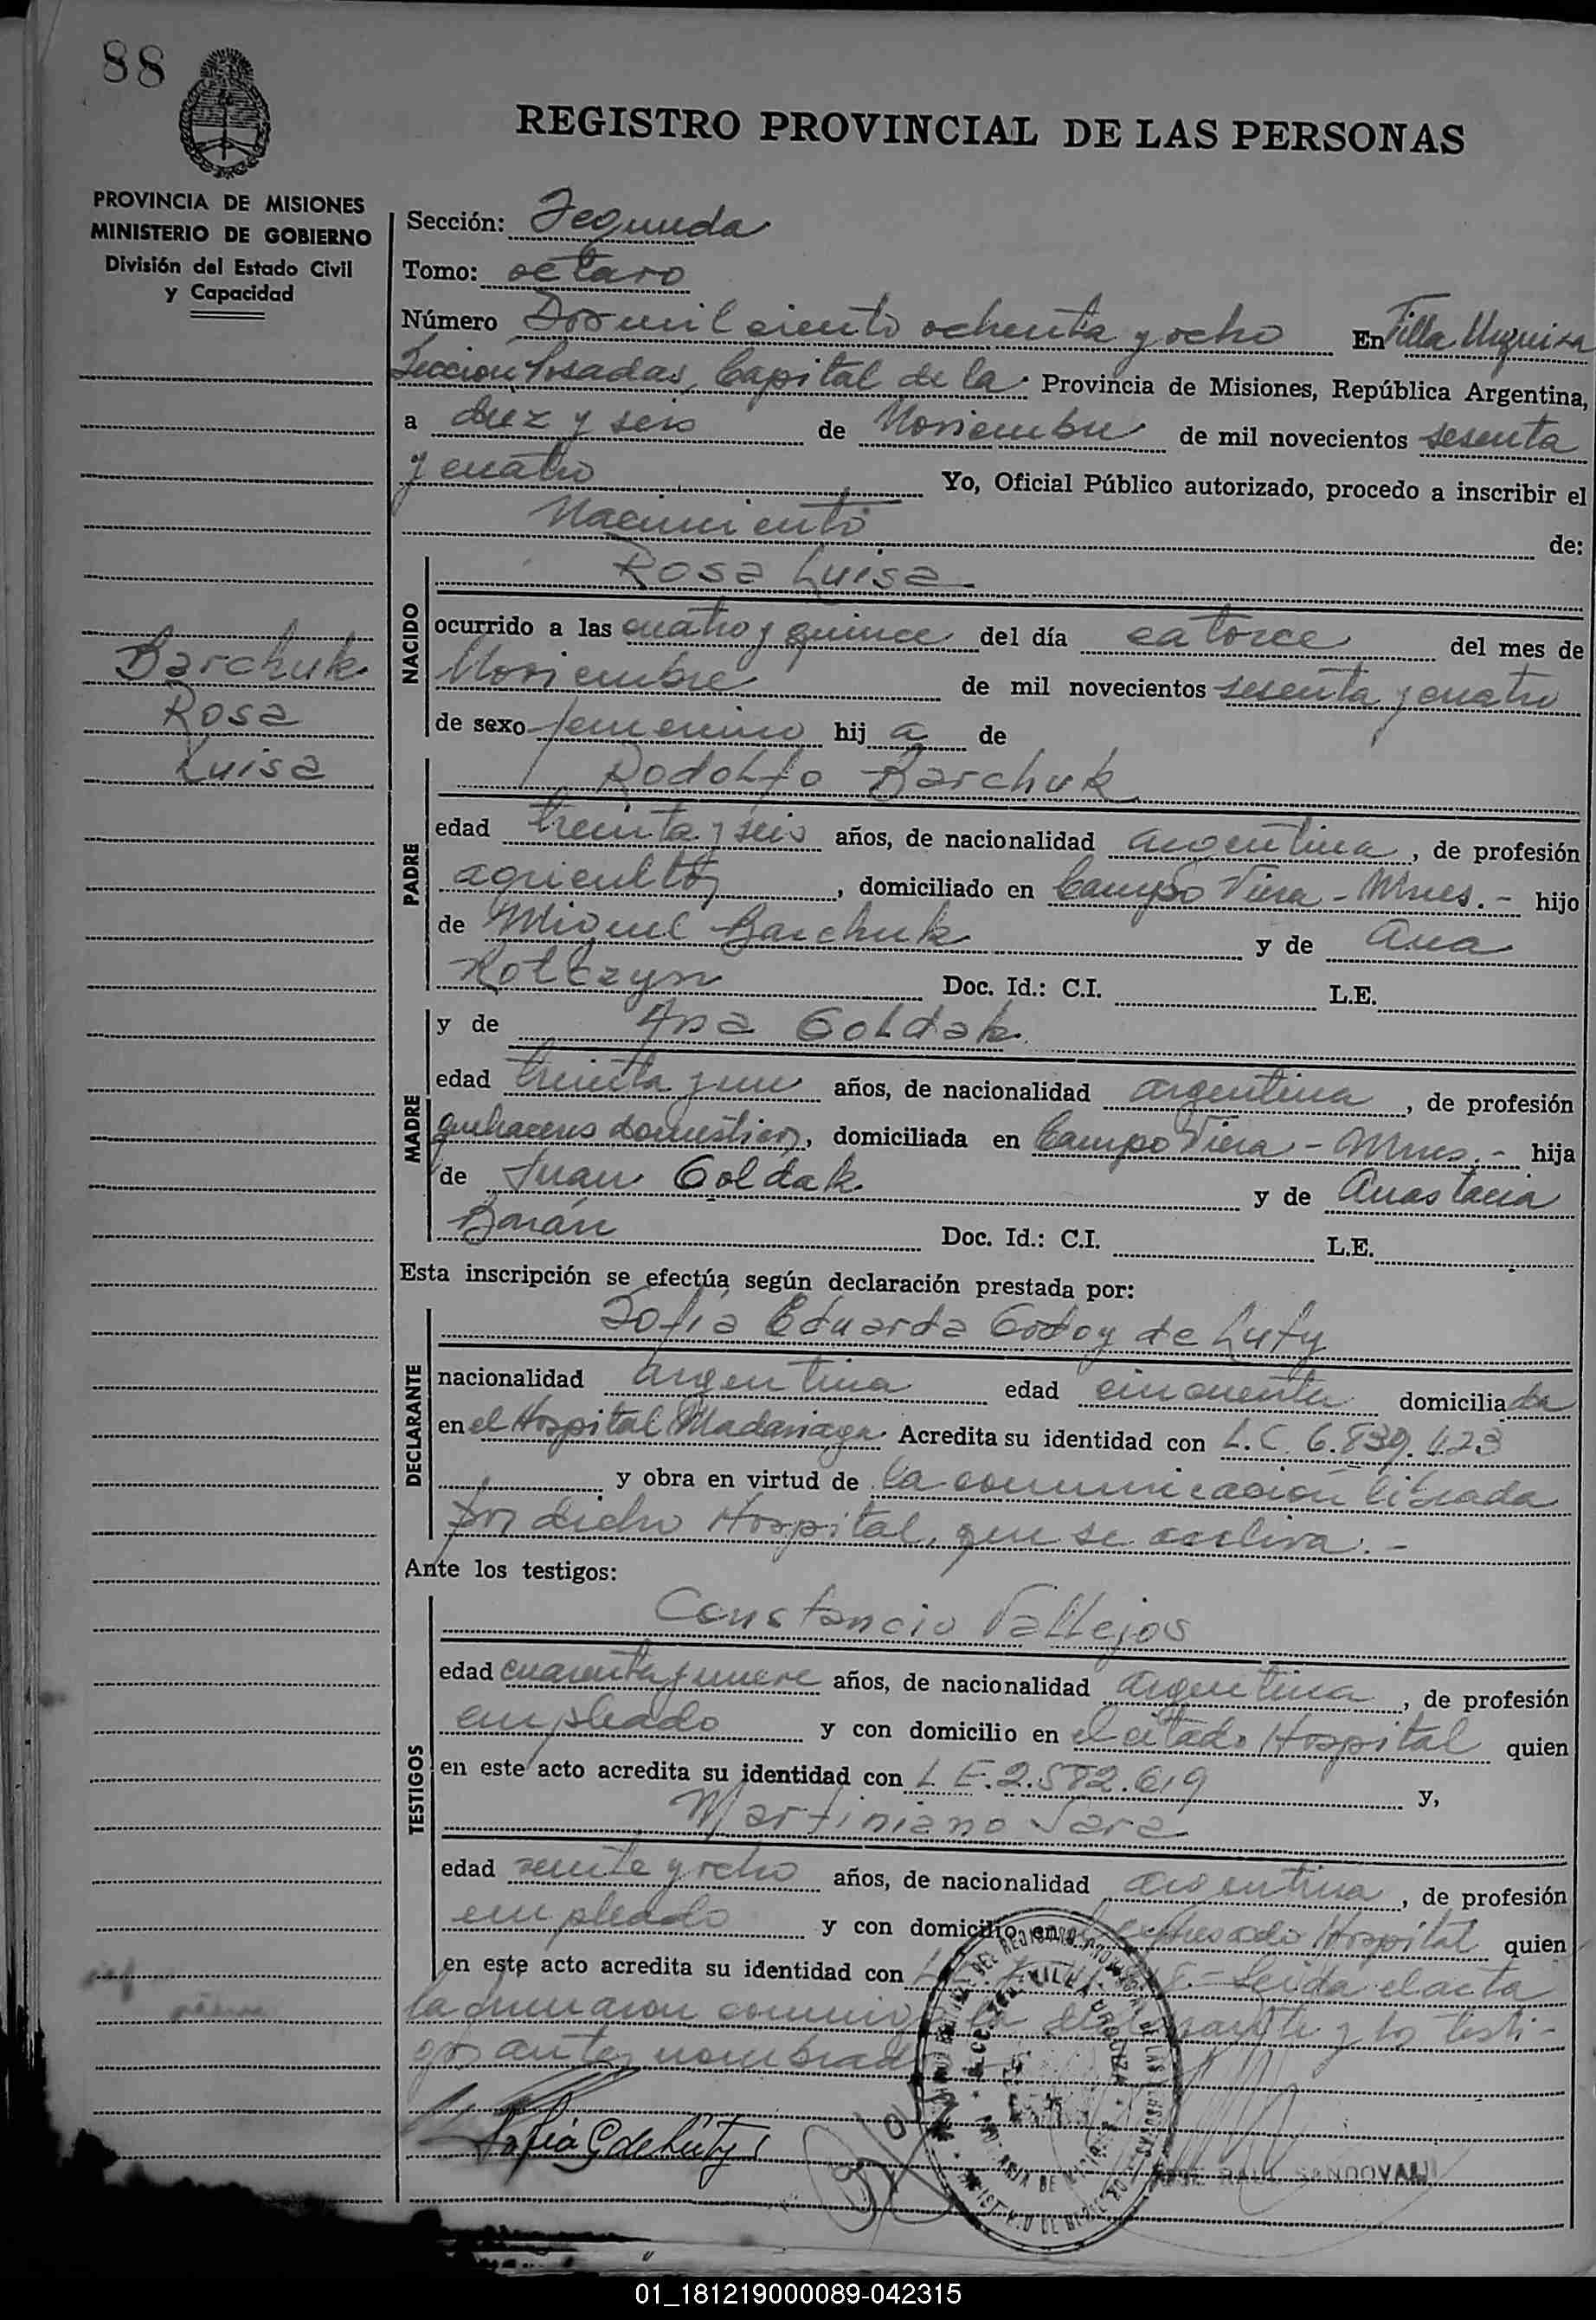 88
REGISTRO PROVINCIAL DE LAS PERSONAS
PROVINCIA DE MISIONES
MINISTERIO DE GOBIERNO
División del Estado Civil
y Capacidad
Sección: Segunda
Tomo: octavo
Número Dos mil ciento ochenta y ocho En Villa Urquiza
Sección Posadas, Capital de la Provincia de Misiones, República Argentina,
a diez y seis de Noviembre de mil novecientos sesenta
y cuatro Yo, Oficial Público autorizado, procedo a inscribir el
Nacimiento de:
NACIDO
Rosa Luisa
ocurrido a las cuatro y quince del día catorce del mes de
Noviembre de mil novecientos sesenta y cuatro
de sexo femenino hij a de
Barchuk
Rosa
Luisa
PADRE
Rodolfo Barchuk
edad treinta y seis años, de nacionalidad argentina, de profesión
agricultor, domiciliado en Campo Viera - Mnes. - hijo
de Miguel Barchuk y de Ana
Kotczyn Doc. Id.: C.I. L.E.
MADRE
y de Ana Goldak
edad treinta y un años, de nacionalidad argentina, de profesión
quehaceres domésticos, domiciliada en Campo Viera - Mnes. - hija
de Juan Goldak y de Anastacia
Barán Doc. Id.: C.I. L.E.
Esta inscripción se efectúa según declaración prestada por:
DECLARANTE
Sofia Eduarda Godoy de Luty
nacionalidad argentina edad cincuenta domiciliada
en el Hospital Madariaga. Acredita su identidad con L.C. 6.839.423
y obra en virtud de la comunicación librada
por dicho Hospital, que se archiva. -
Ante los testigos:
TESTIGOS
Constancio Vallejos
edad cuarenta y nueve años, de nacionalidad argentina, de profesión
empleado y con domicilio en el citado Hospital quien
en este acto acredita su identidad con L.E. 2.582.619 y,
Martiniano Vara
edad veinte y ocho años, de nacionalidad argentina, de profesión
empleado y con domicilio en el expresado Hospital quien
en este acto acredita su identidad con 8.- Leida el acta
la firmaron conmigo la declarante y los testi-
gos antes nombrados
Sofia G de Luty
VILLA URQUIZA
RAUL SANDOVAL
01_181219000089-042315